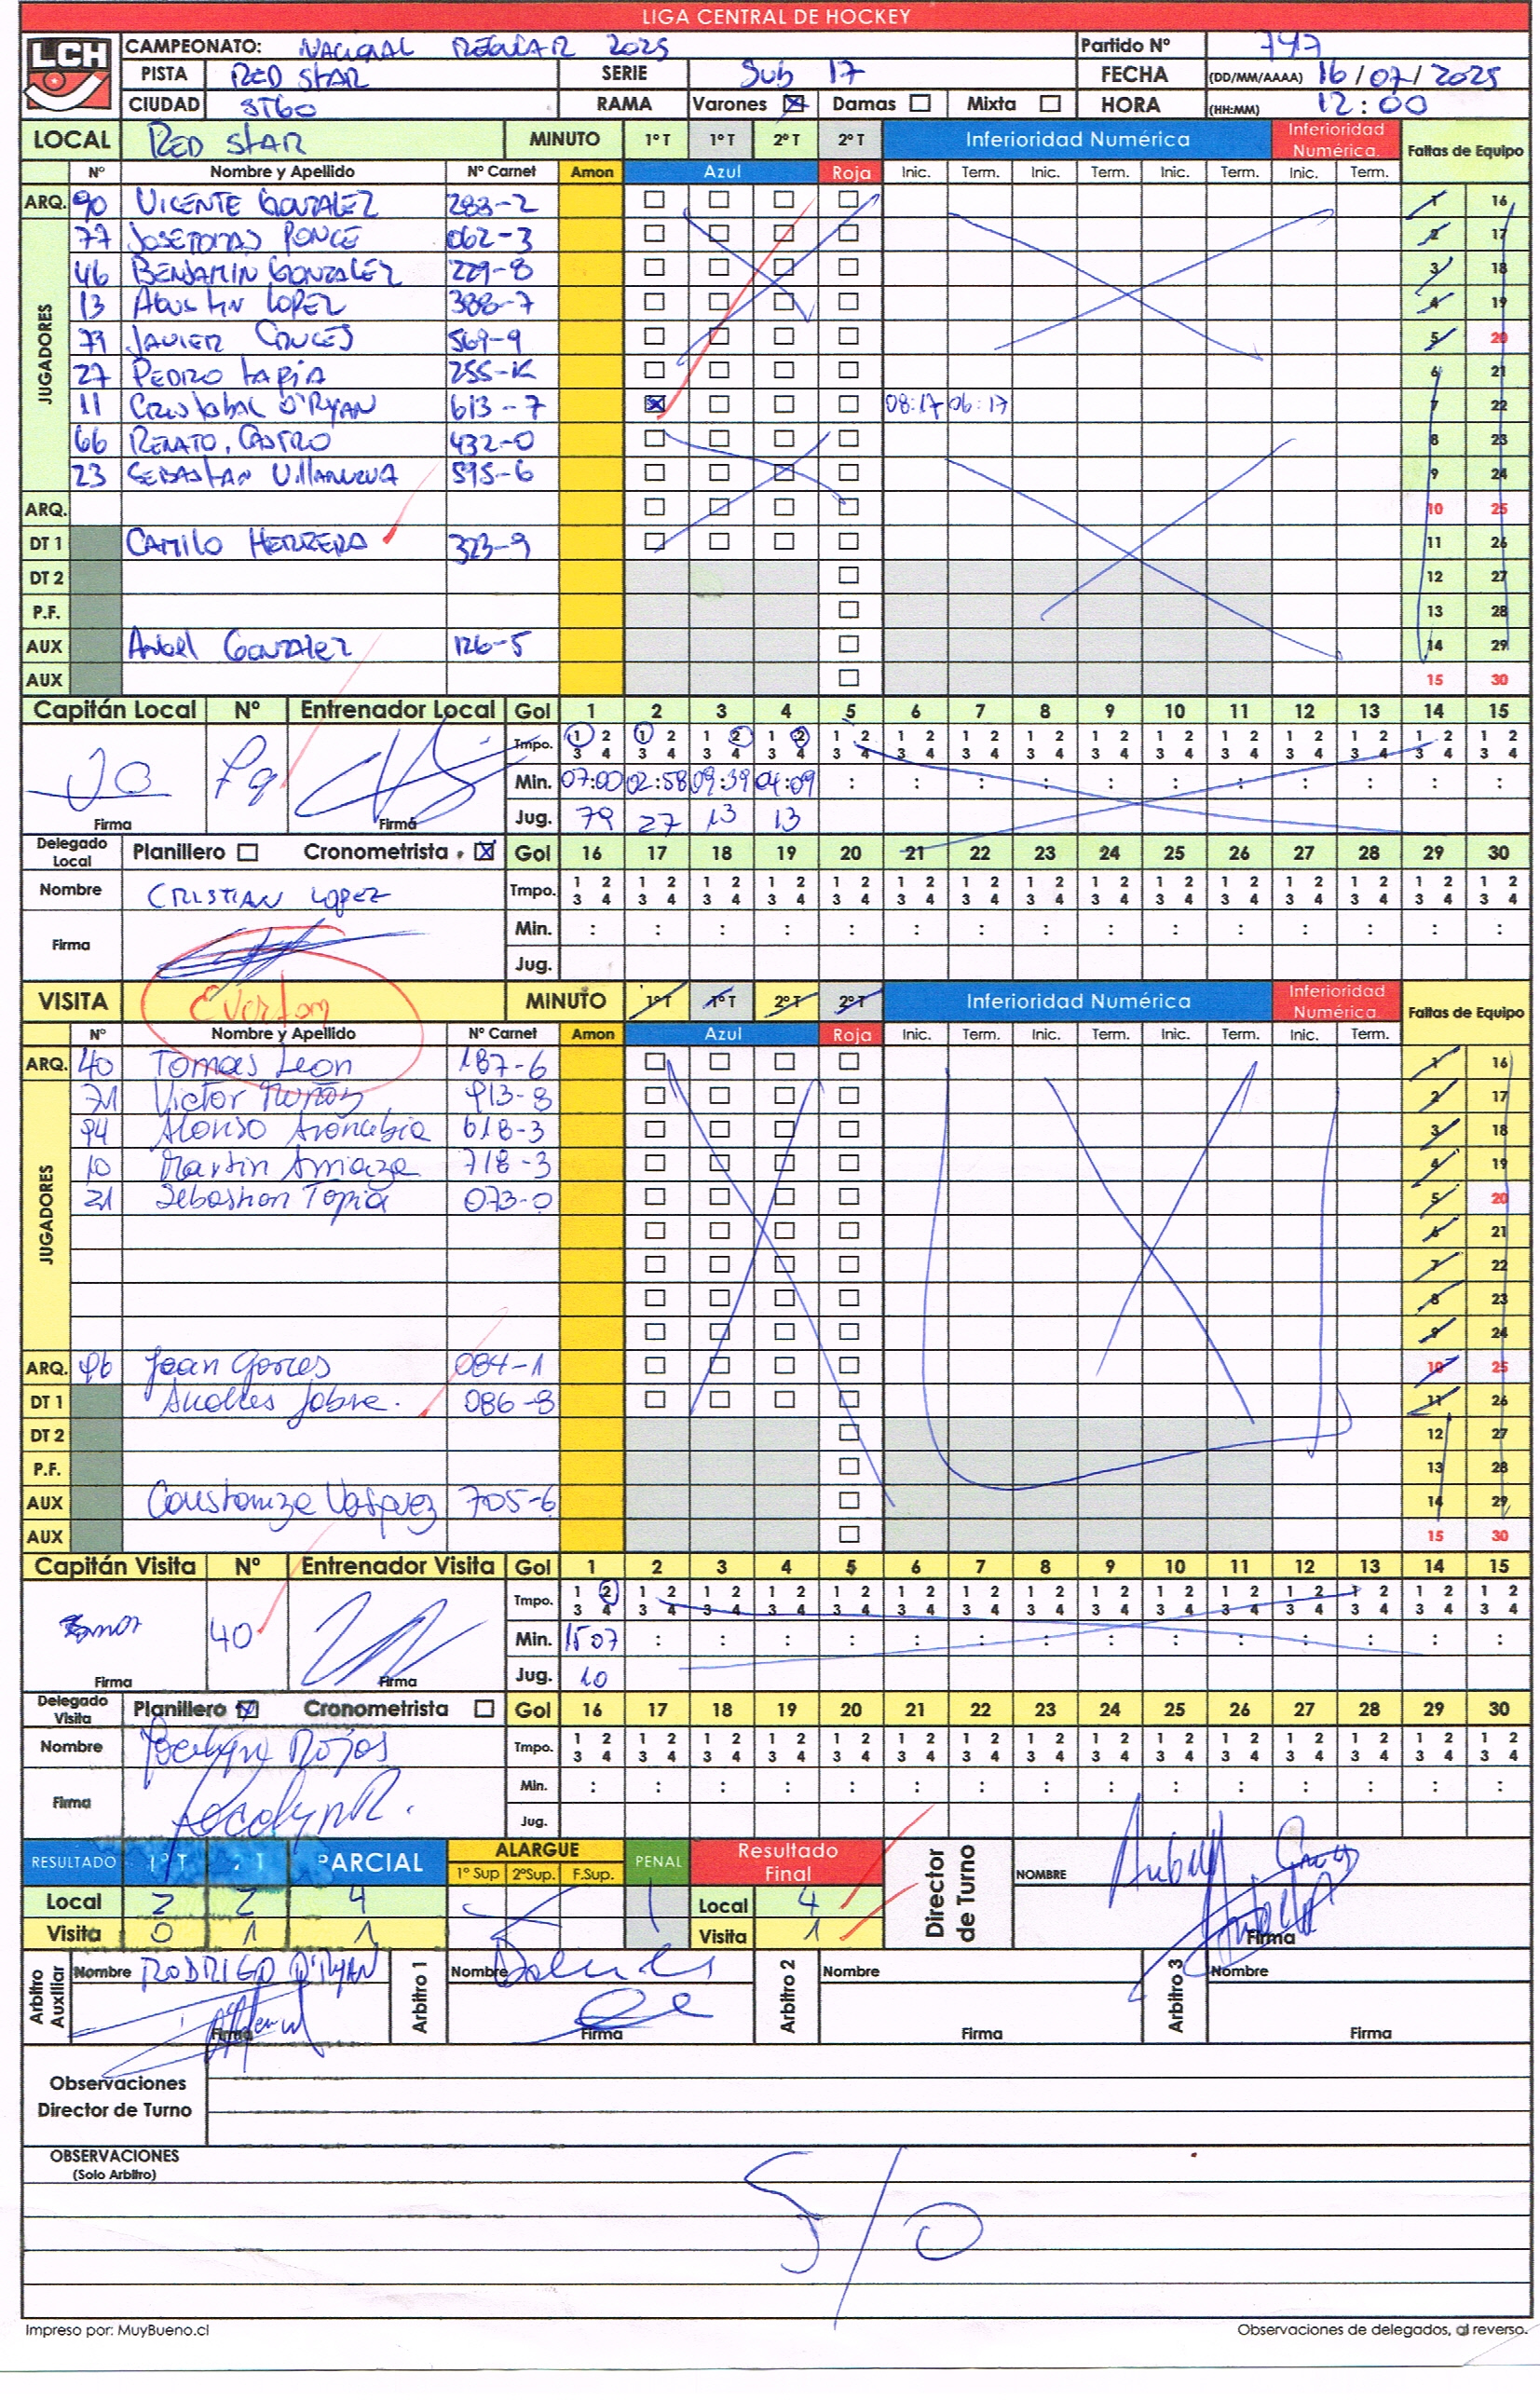 LIGA CENTRAL DE HOCKEY
LCH
CAMPEONATO: NACIONAL REGULAR 2025 Partido Nº 747
PISTA RED STAR SERIE Sub 17 FECHA (DD/MM/AAAA) 16/07/2025
CIUDAD STGO RAMA Varones Damas Mixta HORA (HH:MM) 12:00
LOCAL RED STAR MINUTO 1º T 1º T 2º T 2º T Inferioridad Numérica Inferioridad Numérica. Faltas de Equipo
Nº Nombre y Apellido Nº Carnet Amon Azul Roja Inic. Term. Inic. Term. Inic. Term. Inic. Term.
JUGADORES
ARQ. 90 VICENTE GONZALEZ 283-2 1 16
77 JOSETOMAS PONCE 062-3 2 17
46 BENJAMIN GONZALEZ 229-8 3 18
13 AGUSTIN LOPEZ 388-7 4 19
79 JAVIER CRUCES 569-9 5 20
27 PEDRO TAPIA 255-K 6 21
11 CRISTOBAL O'RYAN 613-7 08:17 06:17 7 22
66 RENATO. CASTRO 432-0 8 23
23 SEBASTIAN VILLANUEVA 595-6 9 24
ARQ. 10 25
DT 1 CAMILO HERRERA 323-9 11 26
DT 2 12 27
P.F. 13 28
AUX Angel GONZALEZ 126-5 14 29
AUX 15 30
Capitán Local Nº Entrenador Local Gol 1 2 3 4 5 6 7 8 9 10 11 12 13 14 15
Tmpo. 1 2 1 2 1 2 1 2 1 2 1 2 1 2 1 2 1 2 1 2 1 2 1 2 1 2 1 2 1 2
3 4 3 4 3 4 3 4 3 4 3 4 3 4 3 4 3 4 3 4 3 4 3 4 3 4 3 4 3 4
Min. 07:00 02:58 09:39 04:09 : : : : : : : : : : :
Firma Firma Jug. 79 27 13 13
Delegado Local Planillero Cronometrista Gol 16 17 18 19 20 21 22 23 24 25 26 27 28 29 30
Nombre CRISTIAN LOPEZ Tmpo. 1 2 1 2 1 2 1 2 1 2 1 2 1 2 1 2 1 2 1 2 1 2 1 2 1 2 1 2 1 2
3 4 3 4 3 4 3 4 3 4 3 4 3 4 3 4 3 4 3 4 3 4 3 4 3 4 3 4 3 4
Firma Min. : : : : : : : : : : : : : : :
Jug.
VISITA Everton MINUTO 1º T 1º T 2º T 2º T Inferioridad Numérica Inferioridad Numérica. Faltas de Equipo
Nº Nombre y Apellido Nº Carnet Amon Azul Roja Inic. Term. Inic. Term. Inic. Term. Inic. Term.
JUGADORES
ARQ. 40 Tomas Leon 187-6 1 16
71 Victor Muñoz 913-8 2 17
94 Alonso Arancibia 618-3 3 18
10 Martin Amaza 718-3 4 19
21 Sebastian Tapia 073-0 5 20
6 21
7 22
8 23
9 24
ARQ. 96 Jean Garces 084-1 10 25
DT 1 Andres Jobra. 086-8 11 26
DT 2 12 27
P.F. 13 28
AUX Constanza Vasquez 705-6 14 29
AUX 15 30
Capitán Visita Nº Entrenador Visita Gol 1 2 3 4 5 6 7 8 9 10 11 12 13 14 15
Tmpo. 1 2 1 2 1 2 1 2 1 2 1 2 1 2 1 2 1 2 1 2 1 2 1 2 1 2 1 2 1 2
3 4 3 4 3 4 3 4 3 4 3 4 3 4 3 4 3 4 3 4 3 4 3 4 3 4 3 4 3 4
40 Min. 15 07 : : : : : : : : : : : : : :
Firma Firma Jug. 10
Delegado Visita Planillero Cronometrista Gol 16 17 18 19 20 21 22 23 24 25 26 27 28 29 30
Nombre Jocelyn Rojas Tmpo. 1 2 1 2 1 2 1 2 1 2 1 2 1 2 1 2 1 2 1 2 1 2 1 2 1 2 1 2 1 2
3 4 3 4 3 4 3 4 3 4 3 4 3 4 3 4 3 4 3 4 3 4 3 4 3 4 3 4 3 4
Firma Jocelyn R. Min. : : : : : : : : : : : : : : :
Jug.
RESULTADO 1º T 2º T PARCIAL ALARGUE 1º Sup 2ºSup. F.Sup. PENAL Resultado Final Director de Turno NOMBRE
Local 2 2 4 Local 4
Visita 0 1 1 Visita 1 Firma
Arbitro Auxiliar Nombre RODRIGO O'RYAN Firma Arbitro 1 Nombre Firma Arbitro 2 Nombre Firma Arbitro 3 Nombre Firma
Observaciones
Director de Turno
OBSERVACIONES
(Solo Arbitro)
S/O
Impreso por: MuyBueno.cl Observaciones de delegados, al reverso.